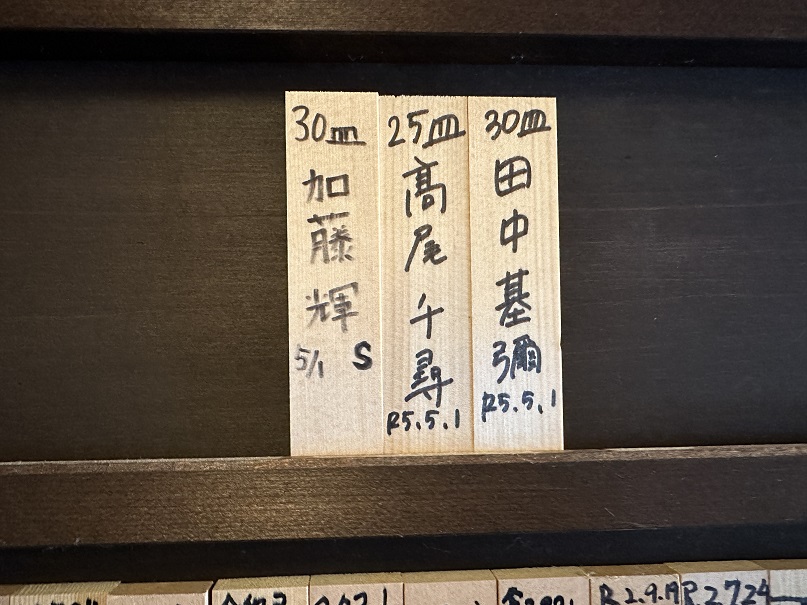 30皿
田中基彌
R5.5.1
25皿
髙尾千尋
R5.5.1
30皿
加藤輝
5/1 S
R2.9.19
R2724